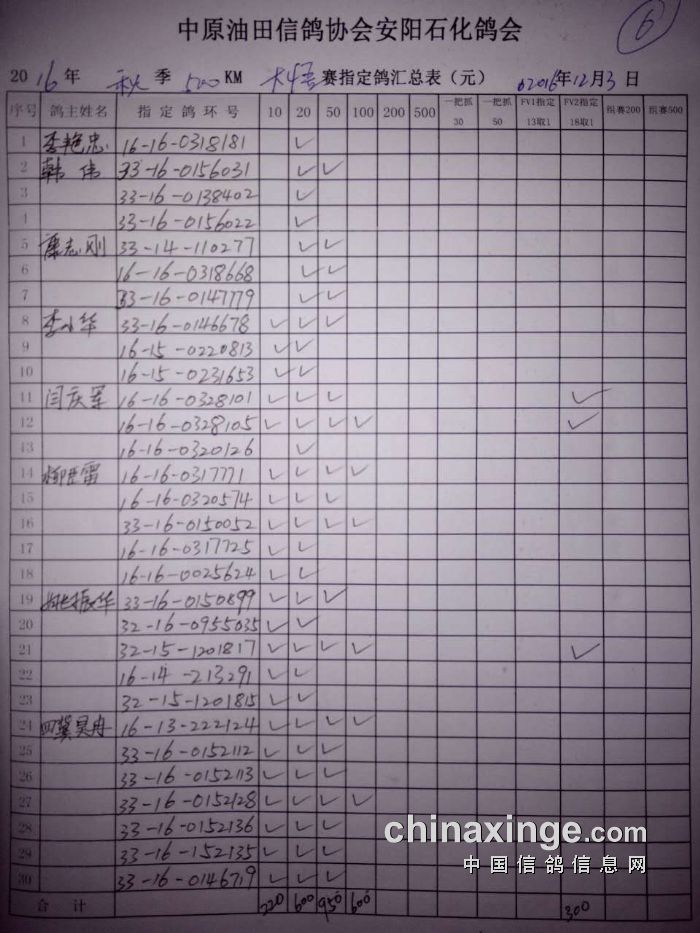 中原油田信鸽协会安阳石化鸽会
6
2016年 秋 季 500KM 大悟 赛指定鸽汇总表（元） 2016年12月3日
序号 鸽主姓名 指定鸽环号 10 20 50 100 200 500 一把抓30 一把抓50 FV1指定13取1 FV2指定18取1 组赛200 组赛500
1 李艳忠 16-16-0318181 ✓
2 韩伟 33-16-0156031 ✓ ✓
3 33-16-0138402 ✓
4 33-16-0156022 ✓
5 廉志刚 33-14-110277 ✓ ✓
6 16-16-0318668 ✓ ✓
7 33-16-0147779 ✓ ✓
8 李小华 33-16-0146678 ✓ ✓ ✓
9 16-15-0220813 ✓ ✓
10 16-15-0231653 ✓ ✓
11 闫庆军 16-16-0328101 ✓ ✓ ✓ ✓
12 16-16-0328105 ✓ ✓ ✓ ✓ ✓
13 16-16-0320126 ✓
14 16-16-0317771 ✓ ✓ ✓ ✓
15 16-16-0320574 ✓ ✓ ✓
16 33-16-0150052 ✓ ✓ ✓ ✓
17 16-16-0317725 ✓ ✓
18 16-16-0025624 ✓ ✓
19 姚振华 33-16-0150899 ✓ ✓ ✓
20 32-16-0955035 ✓ ✓
21 32-15-1201817 ✓ ✓ ✓ ✓ ✓
22 16-14-213291 ✓ ✓
23 32-15-1201815 ✓ ✓
24 四冀昊冉 16-13-222124 ✓ ✓ ✓ ✓
25 33-16-0152112 ✓ ✓ ✓
26 33-16-0152113 ✓ ✓ ✓
27 33-16-0152128 ✓ ✓ ✓ ✓
28 33-16-0152136 ✓ ✓ ✓
29 33-16-152135 ✓ ✓ ✓
30 33-16-0146719 ✓ ✓ ✓
合计 220 600 950 600 300
chinaxinge.com
中国信鸽信息网